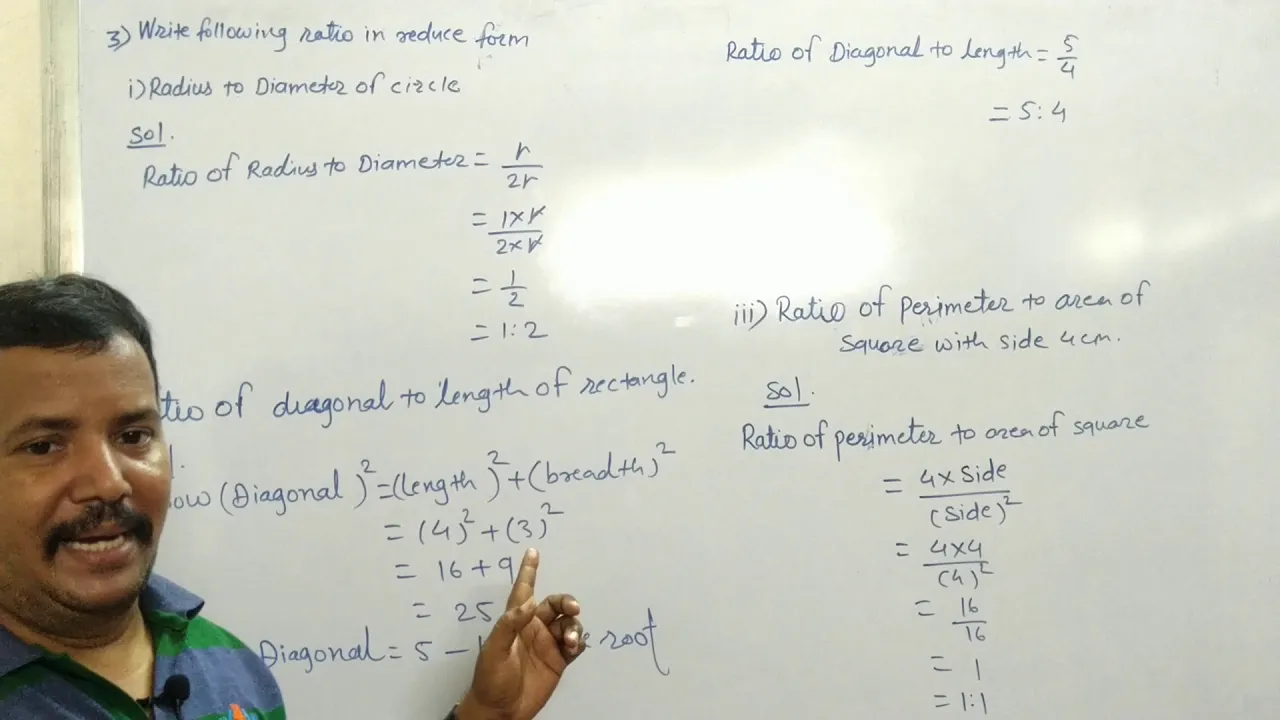 3) Write following ratio in reduce form
i) Radius to Diameter of circle
Sol.
Ratio of Radius to Diameter = r/2r
= 1×r/2×r
= 1/2
= 1:2
tio of diagonal to length of rectangle.
(Diagonal)² = (length)² + (breadth)²
= (4)² + (3)²
= 16 + 9
= 25
Diagonal = 5 – root
Ratio of Diagonal to length = 5/4
= 5:4
iii) Ratio of perimeter to area of
square with side 4cm.
Sol.
Ratio of perimeter to area of square
= 4×Side/(Side)²
= 4×4/(4)²
= 16/16
= 1
= 1:1